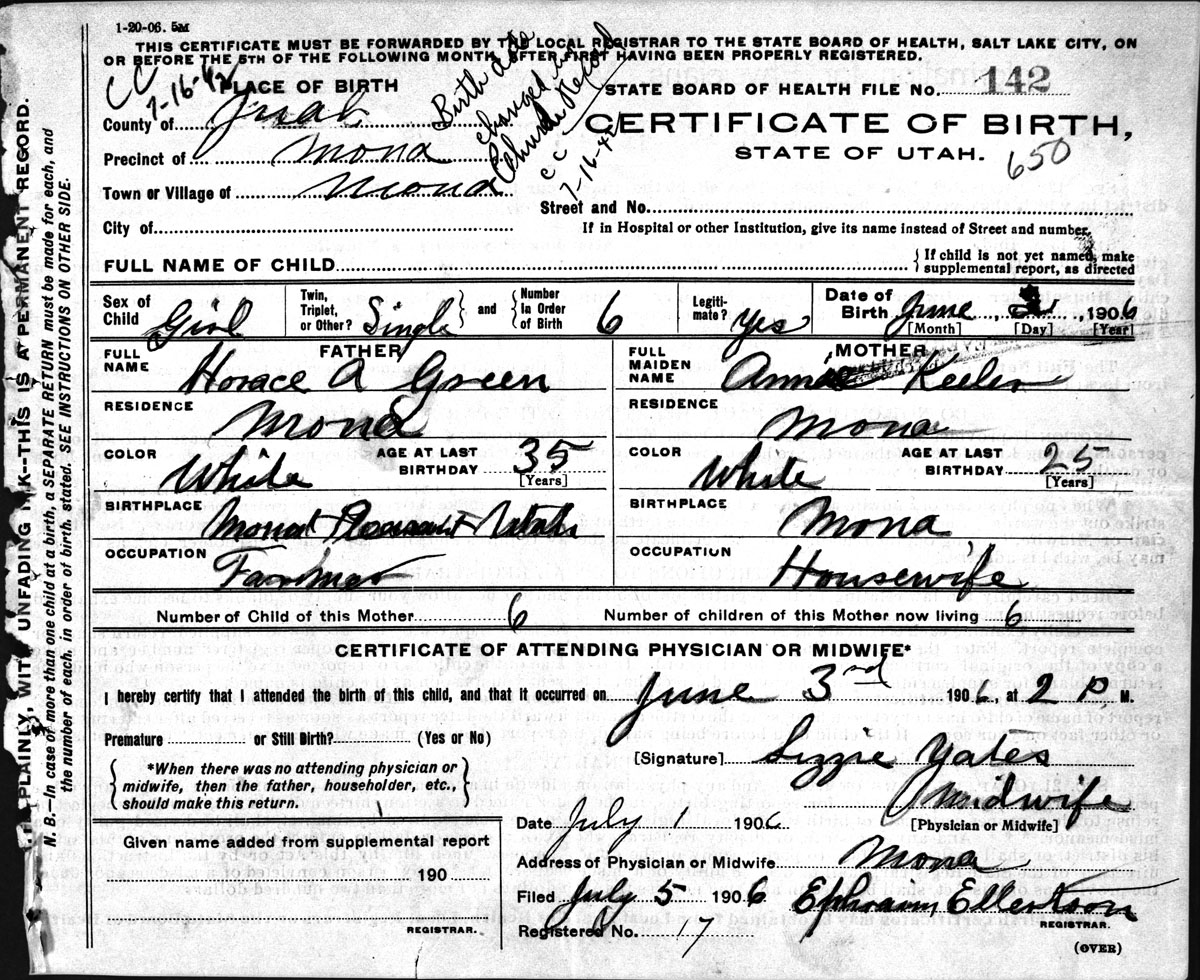 1-20-06. 5M
THIS CERTIFICATE MUST BE FORWARDED BY THE LOCAL REGISTRAR TO THE STATE BOARD OF HEALTH, SALT LAKE CITY, ON
OR BEFORE THE 5TH OF THE FOLLOWING MONTH, AFTER FIRST HAVING BEEN PROPERLY REGISTERED.
CC
7-16-42
Birth date
changed
Church Record
CC
PLACE OF BIRTH
STATE BOARD OF HEALTH FILE NO. 142
County of Juab
CERTIFICATE OF BIRTH,
Precinct of Mona
STATE OF UTAH.
650
Town or Village of Mona
Street and No.
City of
If in Hospital or other Institution, give its name instead of Street and number.
FULL NAME OF CHILD
{ If child is not yet named, make
supplemental report, as directed
Sex of Child Girl
Twin, Triplet, or Other? Single } and { Number In Order of Birth 6
Legiti-mate? Yes
Date of Birth June , 1906
[Month] [Day] [Year]
FATHER
FULL NAME Horace A Green
RESIDENCE Mona
COLOR White
AGE AT LAST BIRTHDAY 35
[Years]
BIRTHPLACE Pleasant Utah
OCCUPATION Farmer
MOTHER
FULL MAIDEN NAME Annie Keeler
RESIDENCE Mona
COLOR White
AGE AT LAST BIRTHDAY 25
[Years]
BIRTHPLACE Mona
OCCUPATION Housewife
Number of Child of this Mother 6
Number of children of this Mother now living 6
CERTIFICATE OF ATTENDING PHYSICIAN OR MIDWIFE*
I hereby certify that I attended the birth of this child, and that it occurred on June 3rd 1906, at 2 P M.
Premature or Still Birth? (Yes or No)
[Signature] Lizzie Yates
{ *When there was no attending physician or
midwife, then the father, householder, etc.,
should make this return. }
Midwife
[Physician or Midwife]
Date July 1 1906
Address of Physician or Midwife Mona
Filed July 5 1906 Ephraim Ellertson
REGISTRAR.
Registered No. 17
Given name added from supplemental report
190
REGISTRAR.
(OVER)
PLAINLY, WITH UNFADING INK--THIS IS A PERMANENT RECORD.
N. B.—In case of more than one child at a birth, a SEPARATE RETURN must be made for each, and
the number of each, in order of birth, stated. SEE INSTRUCTIONS ON OTHER SIDE.